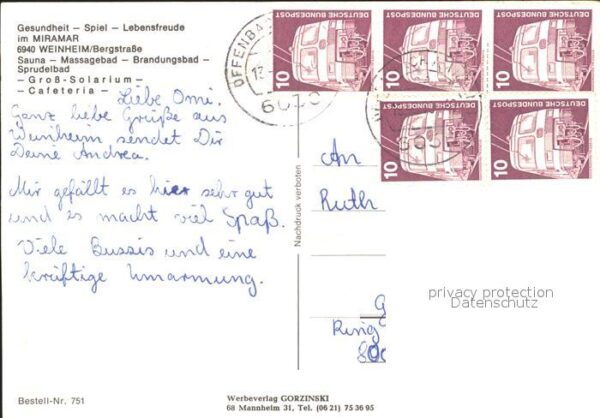 Gesundheit – Spiel – Lebensfreude
im MIRAMAR
6940 WEINHEIM/Bergstraße
Sauna – Massagebad – Brandungsbad –
Sprudelbad
– Groß-Solarium –
– Cafeteria –
Liebe Omi.
Ganz liebe Grüße aus
Weinheim sendet Dir
Deine Andrea.
Mir gefällt es hier sehr gut
und es macht viel Spaß.
Viele Bussis und eine
kräftige Umarmung.
Bestell-Nr. 751
Nachdruck verboten
Werbeverlag GORZINSKI
68 Mannheim 31, Tel. (06 21) 75 36 95
OFFENBA
DEUTSCHE BUNDESPOST
10
DEUTSCHE BUNDESPOST
10
DEUTSCHE BUNDESPOST
10
DEUTSCHE BUNDESPOST
10
DEUTSCHE BUNDESPOST
10
An
Ruth
Ring
privacy protection
Datenschutz